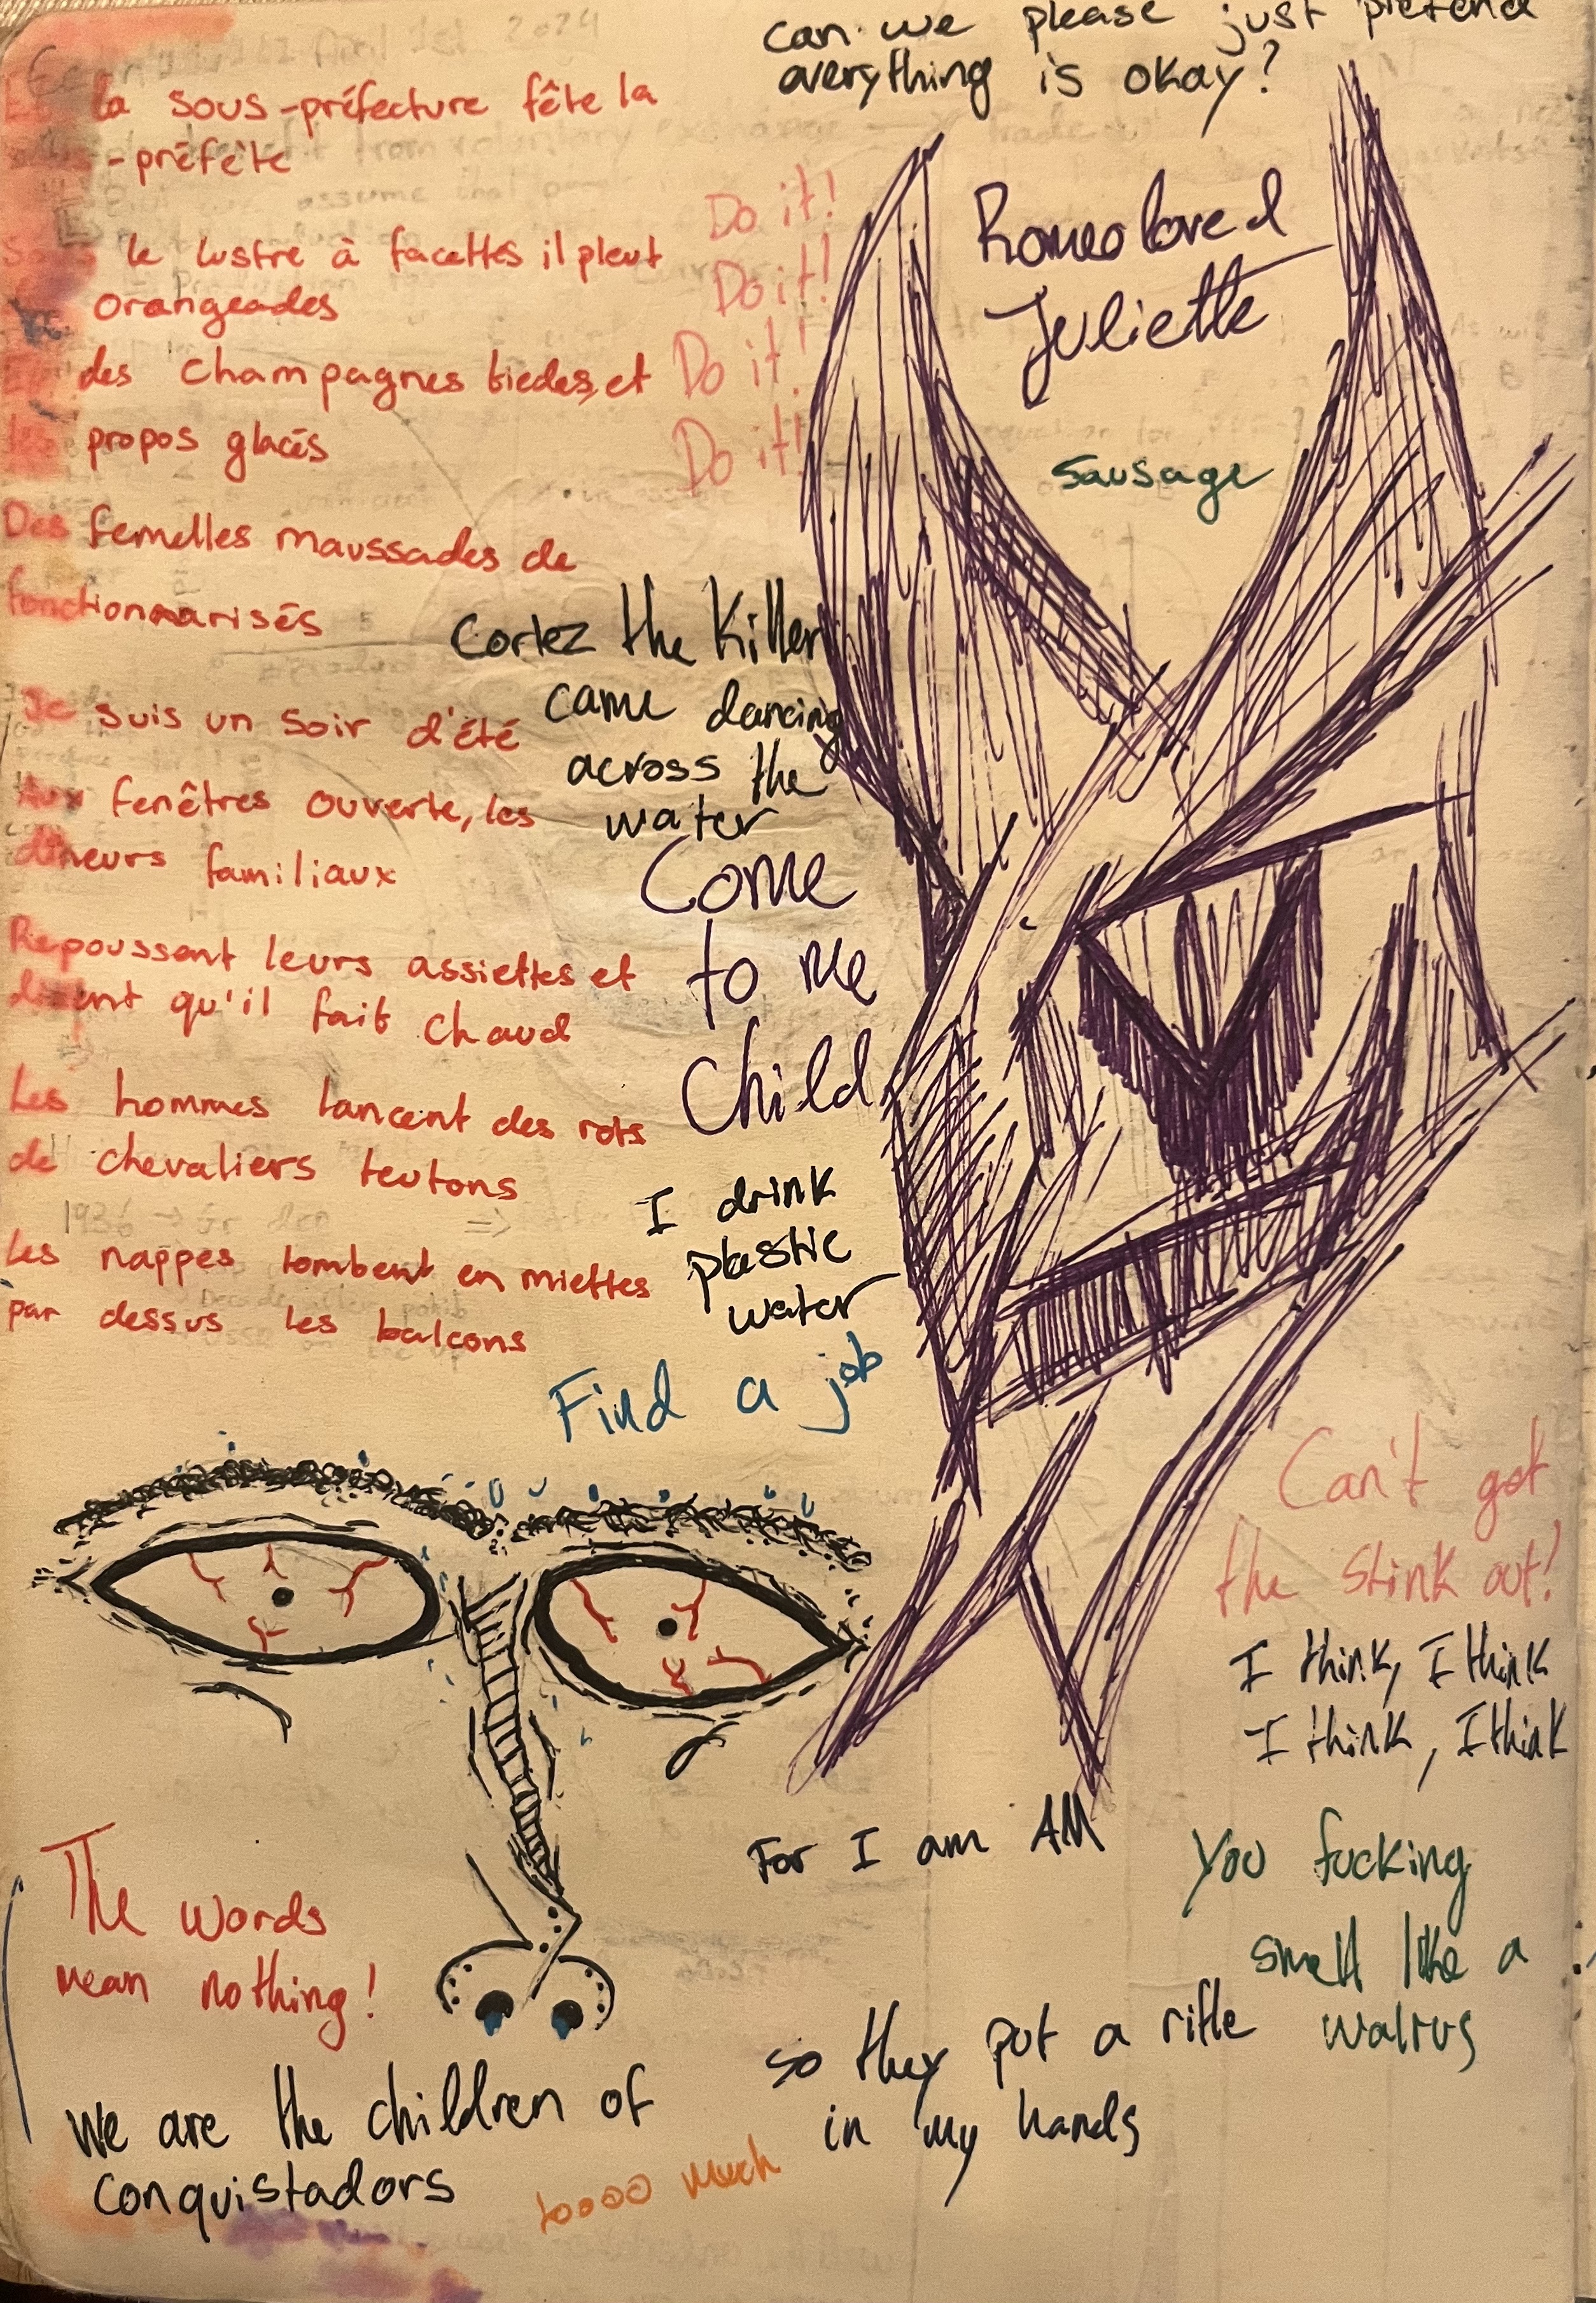 can we please just pretend
everything is okay?
la sous-préfecture fête la
sous-préfète
le lustre à facettes il pleut
orangeades
Et des champagnes tiedes, et
les propos glacés
Des femelles maussades de
fonctionnarisés
Je suis un soir d'été
Aux fenêtres ouverte, les
dîneurs familiaux
Repoussent leurs assiettes et
disent qu'il fait chaud
Les hommes lancent des rots
de chevaliers teutons
Les nappes tombent en miettes
par dessus les balcons
Do it!
Do it!
Do it!
Do it!
Romeo loved
Juliette
Sausage
Cortez the Killer
came dancing
across the
water
Come
to me
Child
I drink
plastic
water
Find a job
Can't get
the stink out!
I think, I think
I think, I think
For I am AM
You fucking
smell like a
walrus
The words
mean nothing!
so they put a rifle
in my hands
we are the children of
conquistadors
toooo much